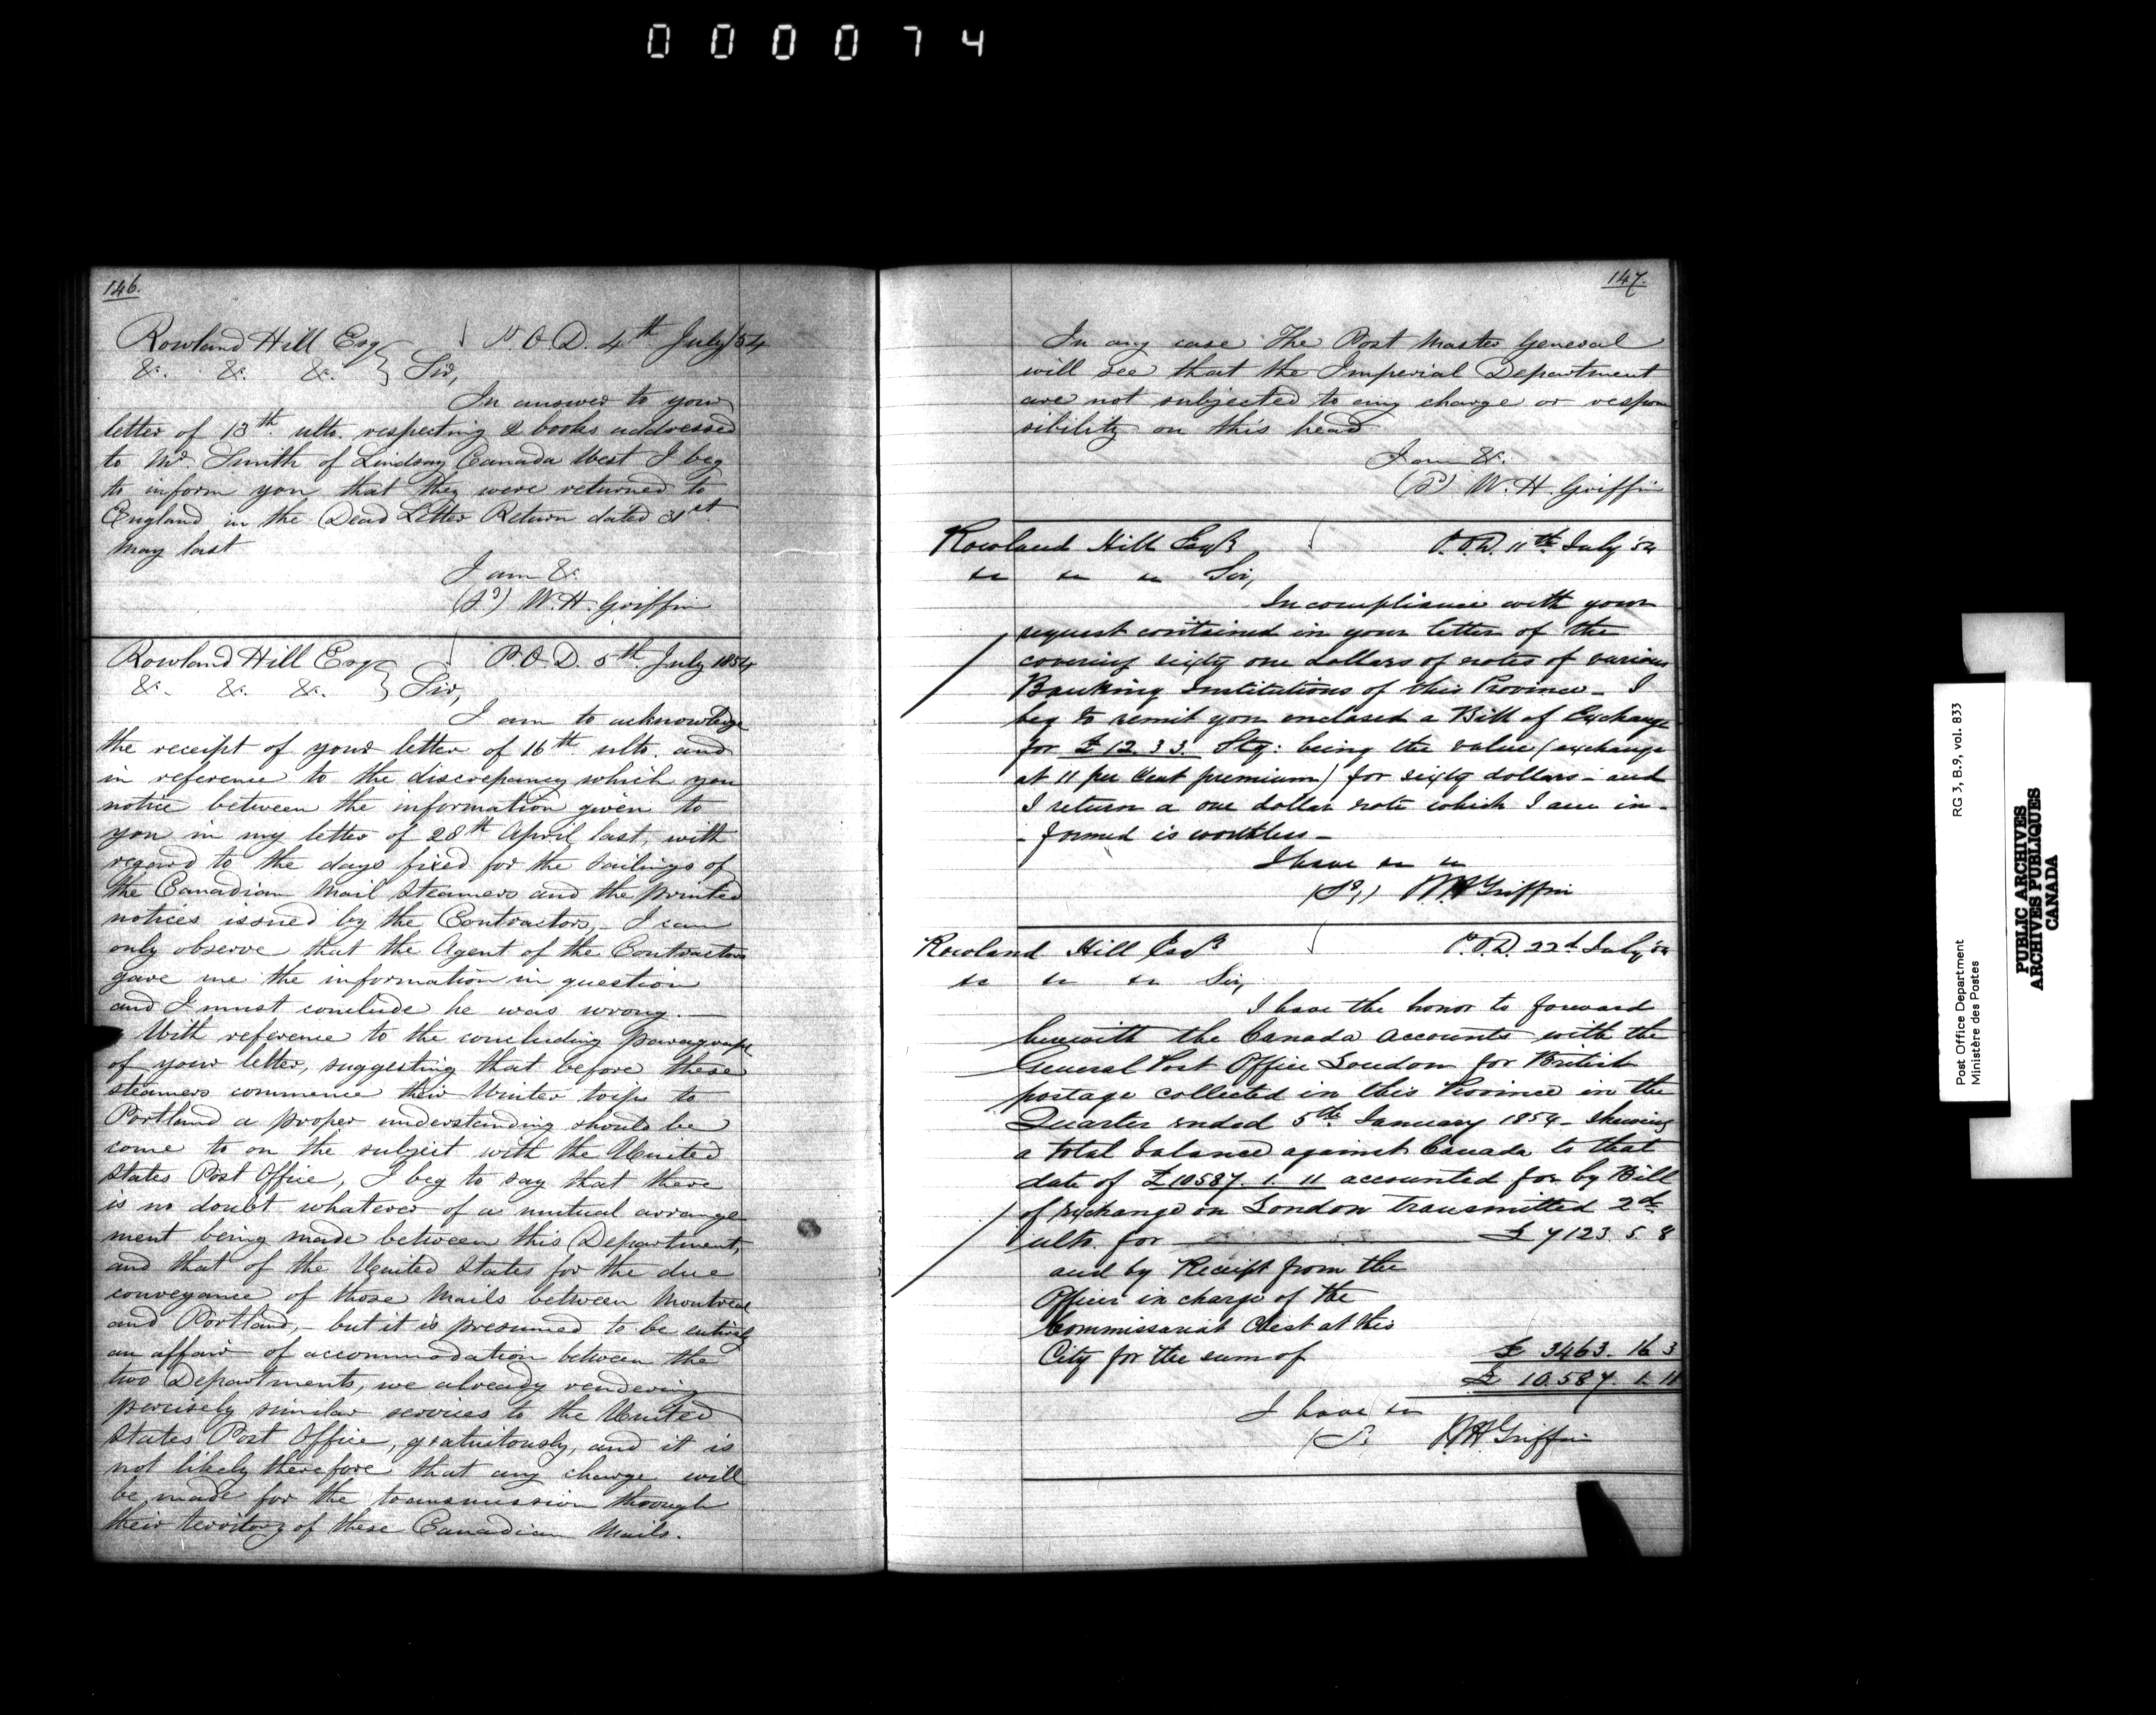 000074
146.
Rowland Hill Esq P.O.D. 4th July/54
&c. &c. &c. } Sir,
In answer to your
letter of 13th ulto. respecting 2 books addressed
to Mr. Smith of Lindsay Canada West I beg
to inform you that they were returned to
England in the Dead Letter Return dated 31st
May last
I am &c.
(Sd) W. H. Griffin
Rowland Hill Esq P.O.D. 5th July 1854
&c. &c. &c. } Sir,
I am to acknowledge
the receipt of your letter of 16th ulto. and
in reference to the discrepancy which you
notice between the information given to
you in my letter of 28th April last, with
regard to the days fixed for the sailings of
the Canadian Mail Steamers and the printed
notices issued by the Contractors, - I can
only observe that the Agent of the Contractors
gave me the information in question
and I must conclude he was wrong. —
With reference to the concluding paragraph
of your letter, suggesting that before these
steamers commence their Winter trips to
Portland a proper understanding should be
come to on the subject with the United
States Post Office, I beg to say that there
is no doubt whatever of a mutual arrange
ment being made between this Department,
and that of the United States for the due
conveyance of those Mails between Montreal
and Portland, - but it is presumed to be entirely
an affair of accommodation between the
two Departments, we already rendering
precisely similar services to the United
States Post Office, gratuitously, and it is
not likely therefore that any charge will
be made for the transmission through
their territory of these Canadian Mails.
147.
In any case The Post Master General
will see that the Imperial Department
are not subjected to any charge or respon
sibility on this head
I am &c.
(Sd) W. H. Griffin
Rowland Hill Esqr P.O.D. 11th July '54
&c &c &c Sir,
In compliance with your
request contained in your letter of the
covering sixty one dollars of notes of various
Banking Institutions of this Province - I
beg to remit you enclosed a Bill of Exchange
for £12. 3 3. Stg: being the value (exchange
at 11 per Cent premium) for sixty dollars - and
I return a one dollar note which I am in-
-formed is worthless -
I have &c &c
(Sd) W H Griffin
Rowland Hill Esqr P.O.D. 22d July '54
&c &c &c Sir,
I have the honor to forward
herewith the Canada Accounts with the
General Post Office London for British
postage collected in this Province in the
Quarter ended 5th January 1854 - shewing
a total balance against Canada to that
date of £10587. 1. 11 accounted for by Bill
of Exchange on London transmitted 2d
ulto. for — £7123. 5. 8
and by Receipt from the
Officer in charge of the
Commissariat Chest at this
City for the sum of £ 3463. 16 3
£ 10.587. 1. 11
I have &c
(Sd W H Griffin
Post Office Department RG 3, B.9, vol. 833
Ministère des Postes
PUBLIC ARCHIVES
ARCHIVES PUBLIQUES
CANADA